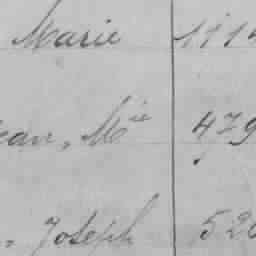 Marie 111
ean, Mie 479
, Joseph 520